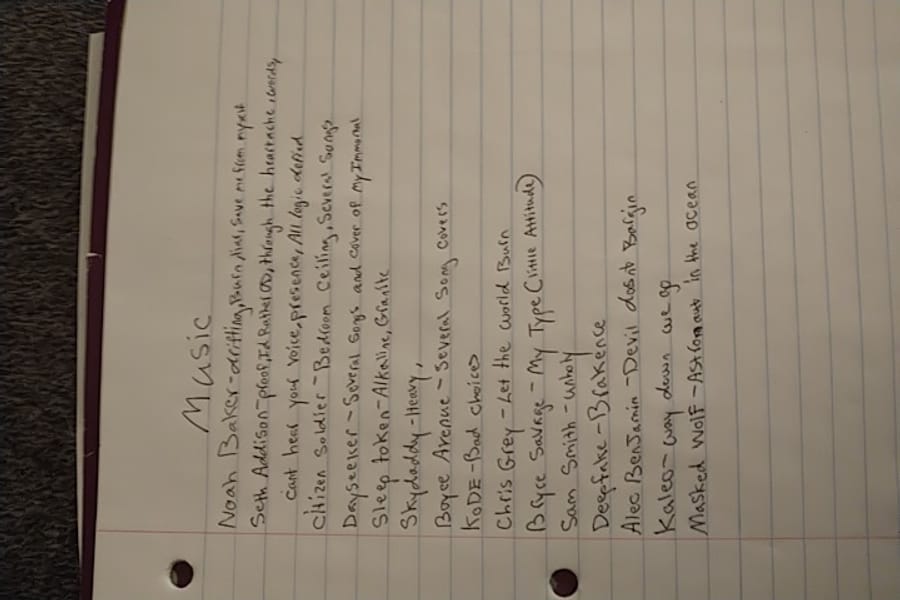 Music
Noah Baker - drifting, Burn, liar, Save me from myself
Seth Addison - proof, Id Rather, through the heartache, words,
cant hear your voice, presence, All logic defied
Citizen Soldier - Bedroom Ceiling, Several Songs
Dayseeker - Several Songs and cover of my Immortal
Sleep token - Alkaline, Granite
Skydaddy - Heavy,
Boyce Avenue - Several Song covers
KoDE - Bad choices
Chris Grey - Let the world Burn
Bryce Savage - My Type (little Attitude)
Sam Smith - unholy
Deepfake - Brakence
Alec BenJamin - Devil dosnt Bargin
Kaleo - way down we go
Masked Wolf - Astronaut in the ocean